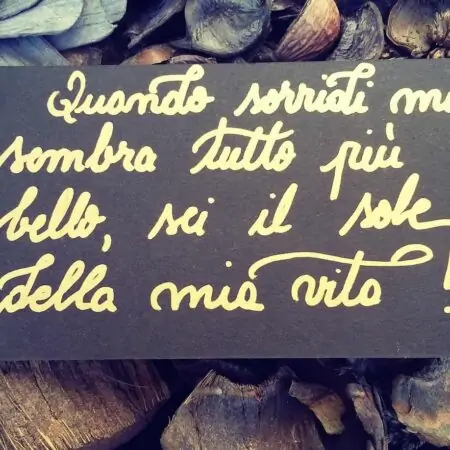 Quando sorridi mi
sembra tutto più
bello, sei il sole
della mia vita !